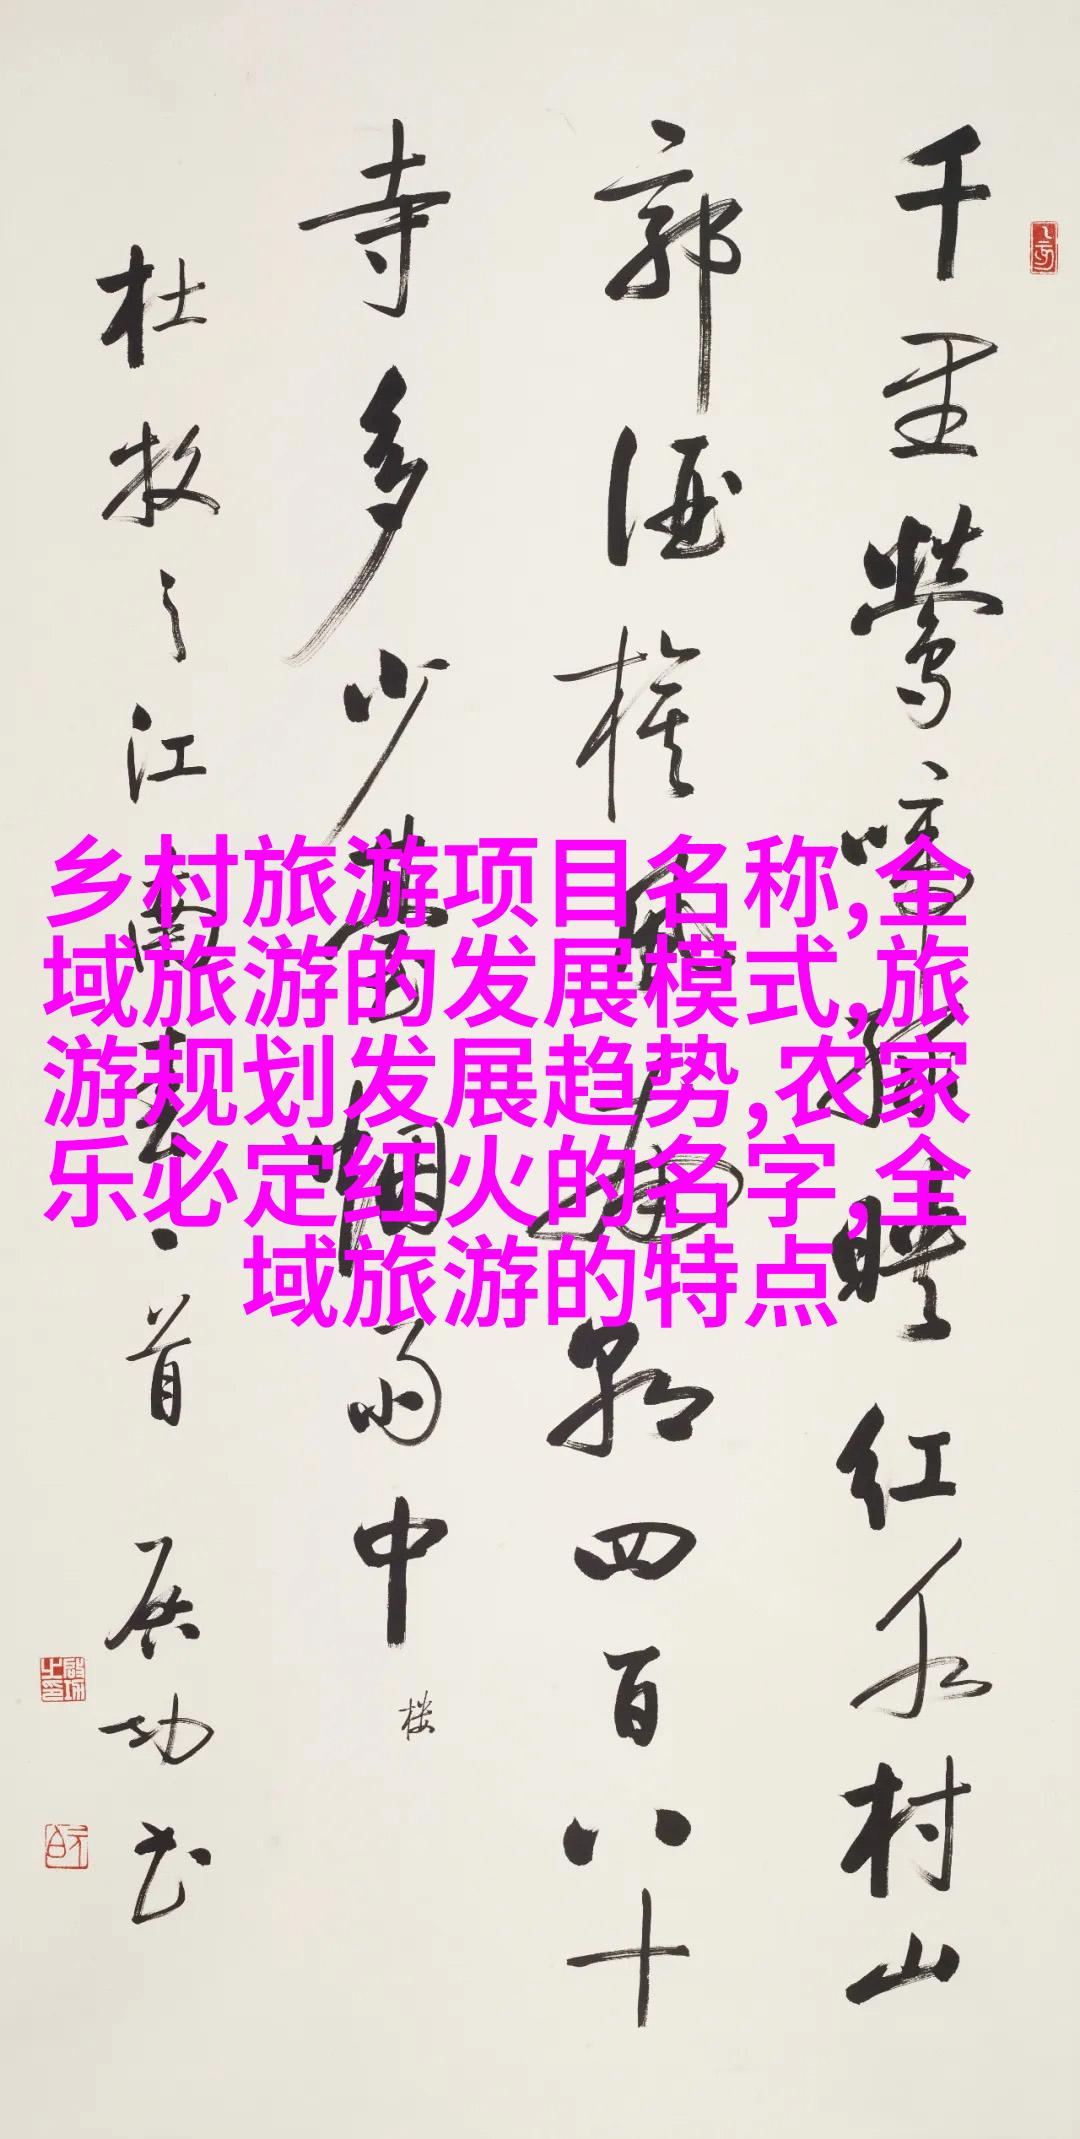 千里鶯啼绿暎红水村山
郭酒旗風南朝四百八十
寺多少臺烟雨中
楼
杜牧之江南春一首 启功书
乡村旅游项目名称,全
域旅游的发展模式,旅
游规划发展趋势,农家
乐必定红火的名字,全
域旅游的特点